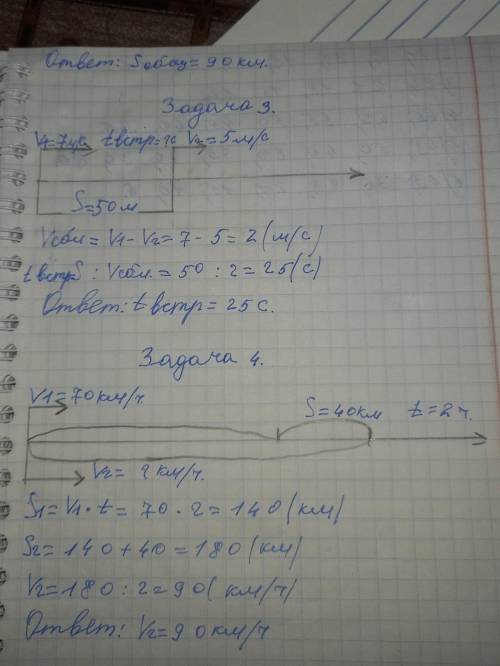 Ответ: Sобщ = 90 км.
Задача 3.
V1=7м/с tвстр=?с V2=5м/с
S=50м
Vсбл= V1-V2= 7-5=2(м/с)
tвстр=S : Vсбл.= 50 : 2=25(с)
Ответ: tвстр= 25с.
Задача 4.
V1=70км/ч
S=40км t=2ч.
V2= ?км/ч.
S1=V1•t= 70•2=140(км)
S2=140+40=180(км)
V2=180:2=90(км/ч)
Ответ: V2=90км/ч